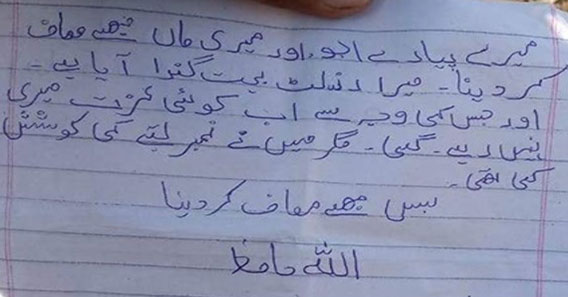 میرے پیارے ابو، اور میری ماں مجھے معاف
کر دینا۔ میرا رزلٹ بہت گندا آیا ہے۔
اور جس کی وجہ سے اب کوئی عزت میری
نہیں رہے گی۔ مگر میں نے نمبر لینے کی کوشش
کی تھی۔
بس مجھے معاف کر دینا
اللہ حافظ